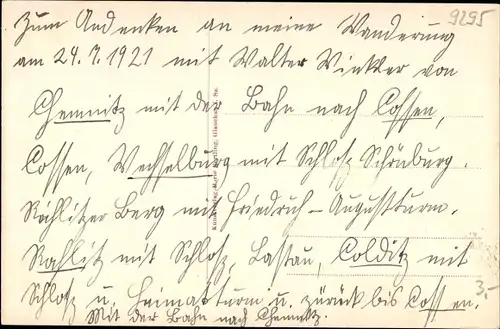 9295
Zum Andenken an meine Wanderung
am 24.7.1921 mit Walter Winkler von
Chemnitz mit der Bahn nach Cossen,
Cossen, Wechselburg mit Schloß Schönburg.
Rochlitzer Berg mit Friedrich-Augustturm.
Rochlitz mit Schloß, Lastau, Colditz mit
Schloß u. Heimatturm u. zurück bis Cossen.
Mit der Bahn nach Chemnitz.
3,-